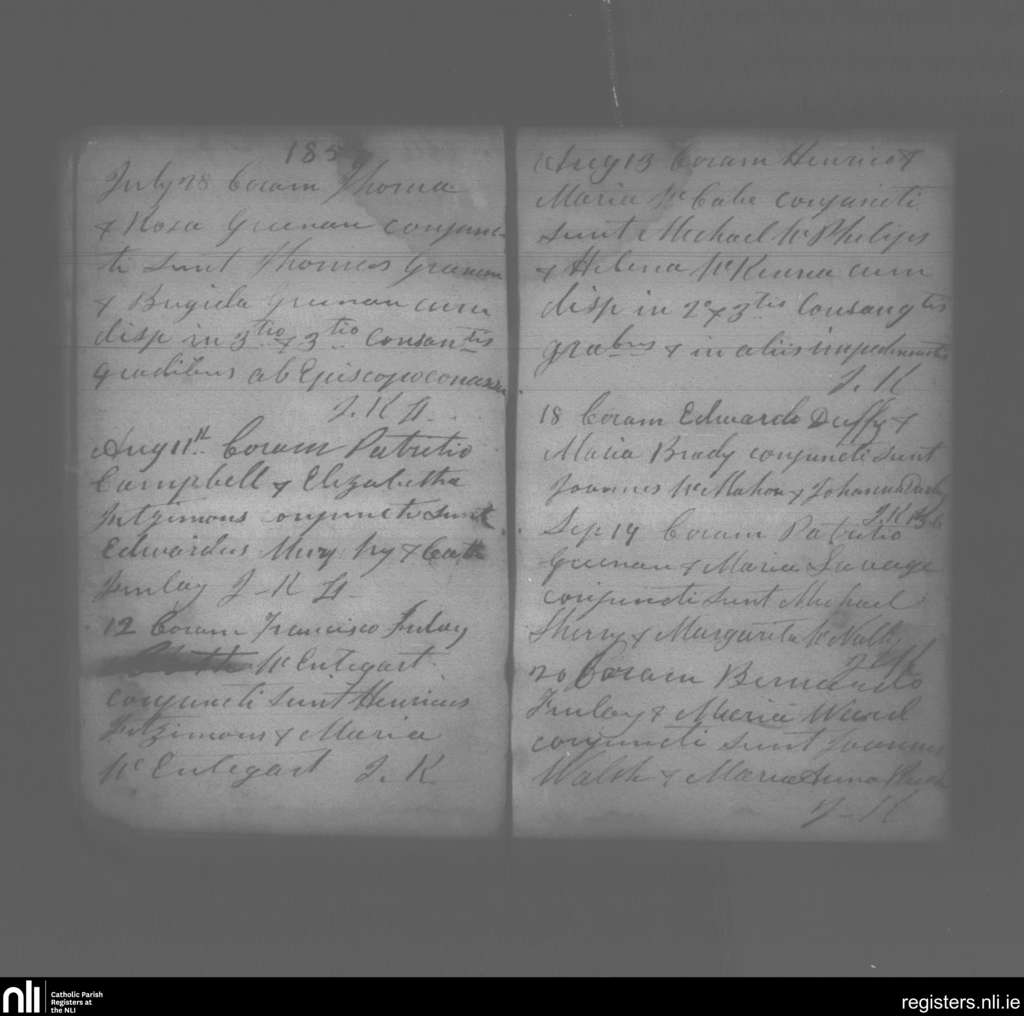 185
July 28 Coram Thoma
& Rosa Greenan conjunc
ti sunt Thomas Greenan
& Brigida Greenan cum
disp in 3tio & 3tio Consantis
gradibus ab Episcopo
J. K
Aug 11th Coram Patritio
Campbell & Elizabetha
Fitzimons conjuncti sunt
Edwardus Murphy & Cath
Finlay J - K
12 Coram Francisco Finlay
McEntegart
conjuncti sunt Henricus
Fitzimons & Maria
McEntegart J. K
Aug 13 Coram Henrico &
Maria McCabe conjuncti
sunt Michael McPhilips
& Helena McKenna cum
disp in 2o & 3tio Consangtis
grabus & in aliis
J. K
18 Coram Edwardo Duffy &
Maria Brady conjuncti sunt
Joannes McMahon & Johanna
J. K
Sep 19 Coram Patritio
Greenan & Maria Savage
conjuncti sunt Michael
Sherry & Margarita McNally
20 Coram Bernardo
Finlay & Maria Ward
conjuncti sunt Joannes
Walsh & Maria Anna
J - K
nli
Catholic Parish
Registers at
the NLI
registers.nli.ie